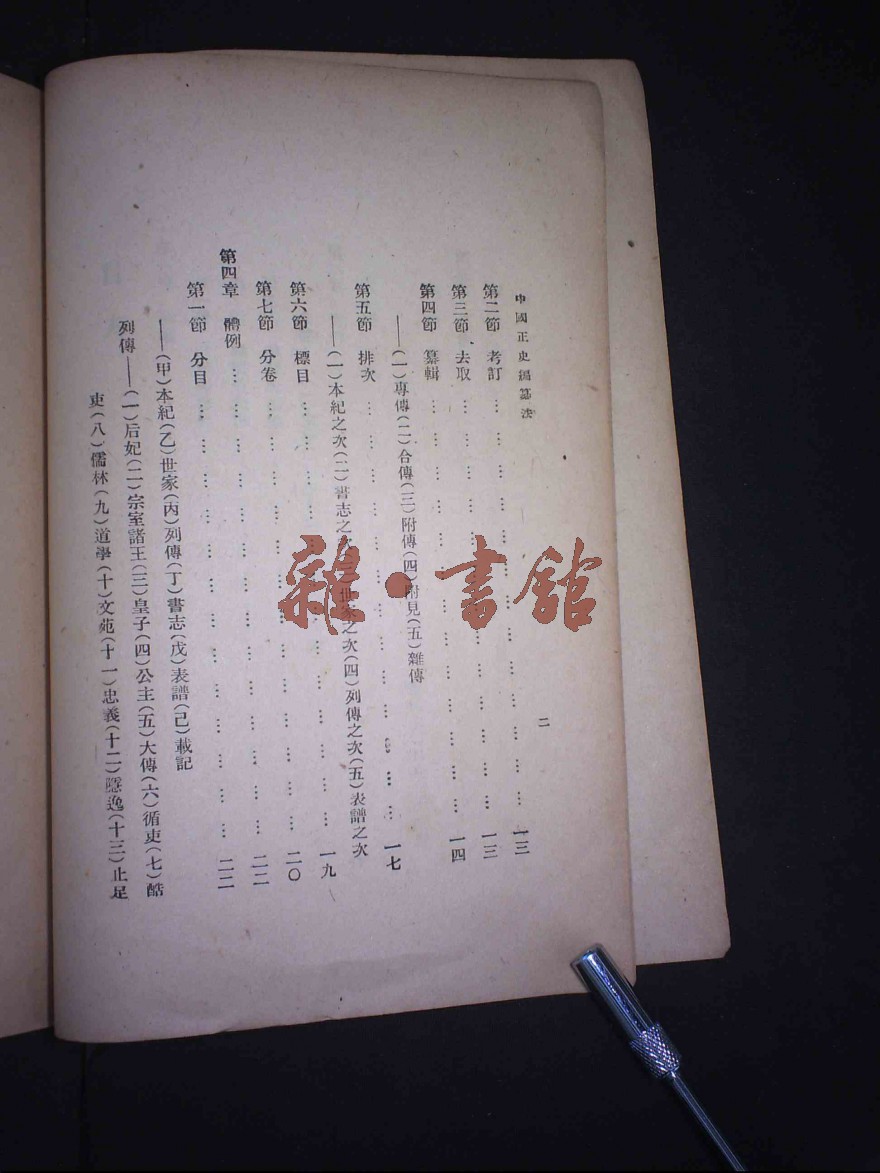 中國正史編纂法
二
第二節 考訂 … … … … … … … … … … … … 一三
第三節 去取 … … … … … … … … … … … … 一三
第四節 纂輯 … … … … … … … … … … … … 一四
——(一)專傳(二)合傳(三)附傳(四)附見(五)雜傳
第五節 排次 … … … … … … … … … … … … 一七
——(一)本紀之次(二)書志之次(三)世家之次(四)列傳之次(五)表譜之次
第六節 標目 … … … … … … … … … … … … 一九
第七節 分卷 … … … … … … … … … … … … 二〇
第四章 體例 … … … … … … … … … … … … 二二
第一節 分目 … … … … … … … … … … … … 二二
——(甲)本紀(乙)世家(丙)列傳(丁)書志(戊)表譜(己)載記
列傳——(一)后妃(二)宗室諸王(三)皇子(四)公主(五)大傳(六)循吏(七)酷
吏(八)儒林(九)道學(十)文苑(十一)忠義(十二)隱逸(十三)止足
雜·書館